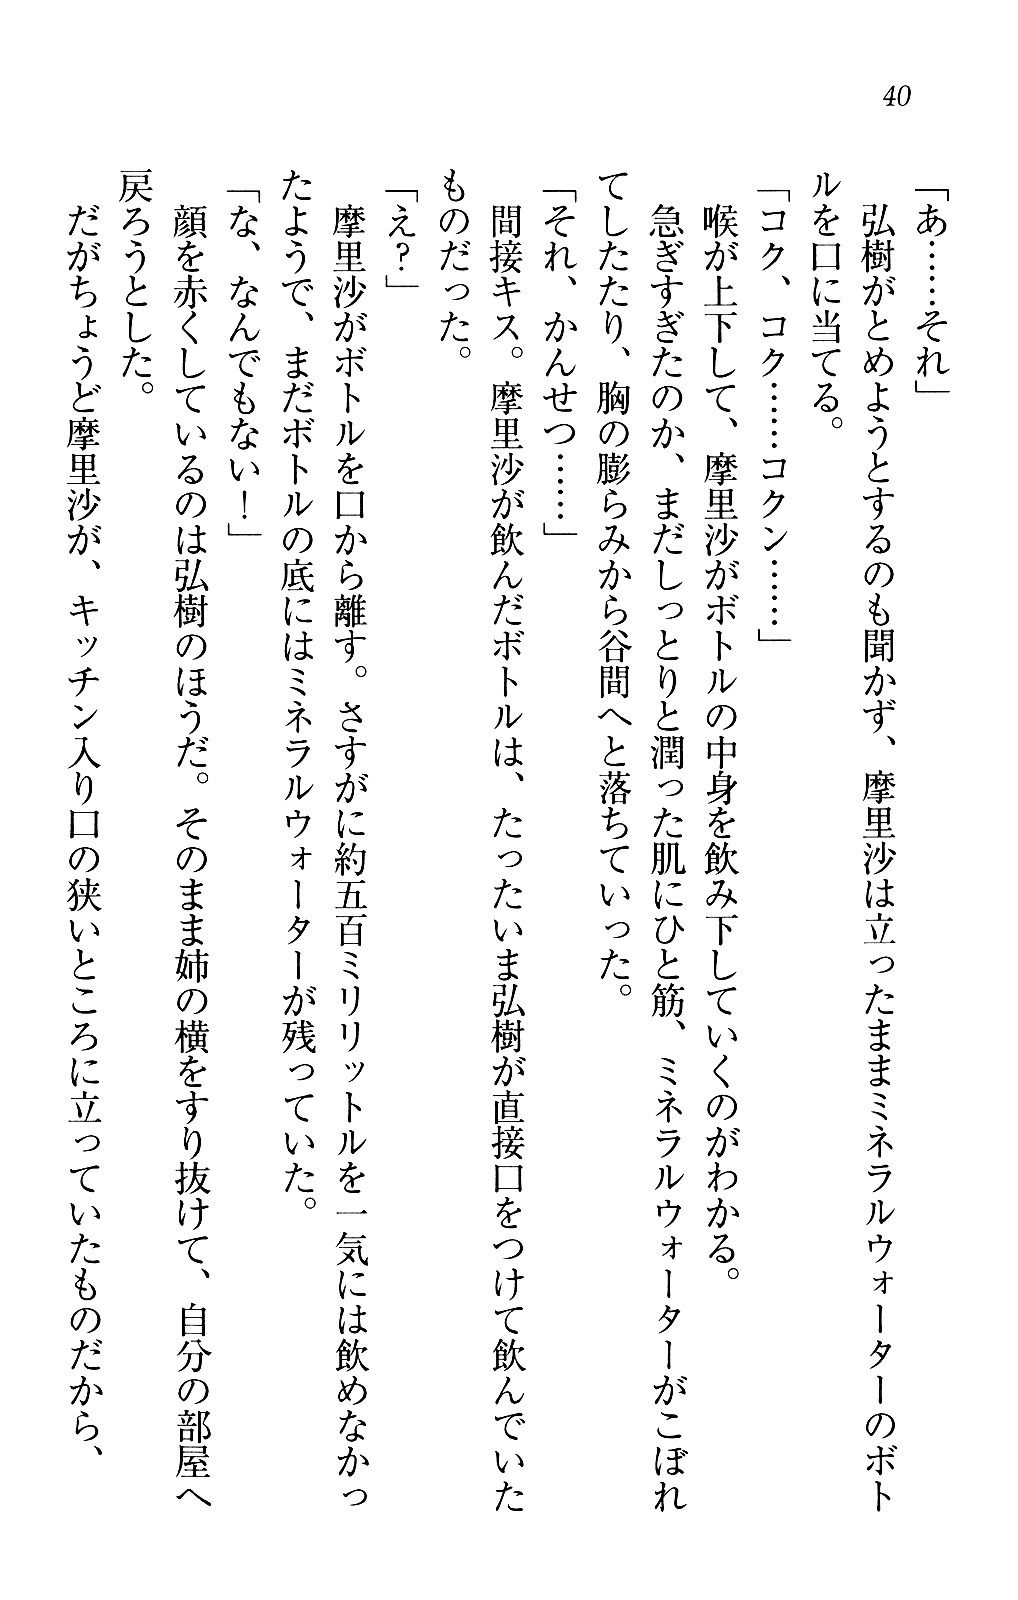 40
「あ……それ」
弘樹がとめようとするのも聞かず、摩里沙は立ったままミネラルウォーターのボト
ルを口に当てる。
「コク、コク……コクン……」
喉が上下して、摩里沙がボトルの中身を飲み下していくのがわかる。
急ぎすぎたのか、まだしっとりと潤った肌にひと筋、ミネラルウォーターがこぼれ
てしたたり、胸の膨らみから谷間へと落ちていった。
「それ、かんせつ……」
間接キス。摩里沙が飲んだボトルは、たったいま弘樹が直接口をつけて飲んでいた
ものだった。
「え？」
摩里沙がボトルを口から離す。さすがに約五百ミリリットルを一気には飲めなかっ
たようで、まだボトルの底にはミネラルウォーターが残っていた。
「な、なんでもない！」
顔を赤くしているのは弘樹のほうだ。そのまま姉の横をすり抜けて、自分の部屋へ
戻ろうとした。
だがちょうど摩里沙が、キッチン入り口の狭いところに立っていたものだから、